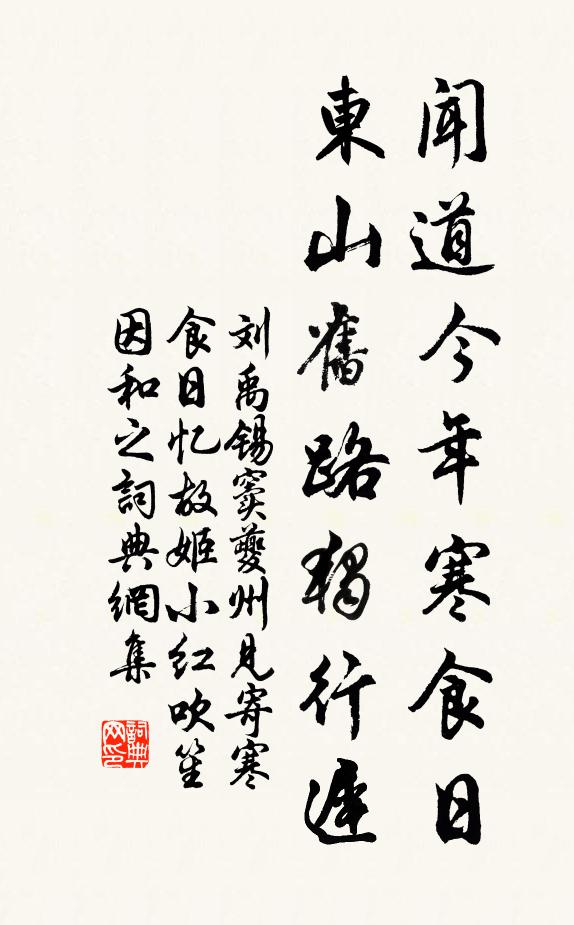 闻道今年寒食日
東山舊路獨行遲
刘禹锡窦夔州見寄寒
食日忆故姬小红吹笙
因和之詞典網集
詞典
网印